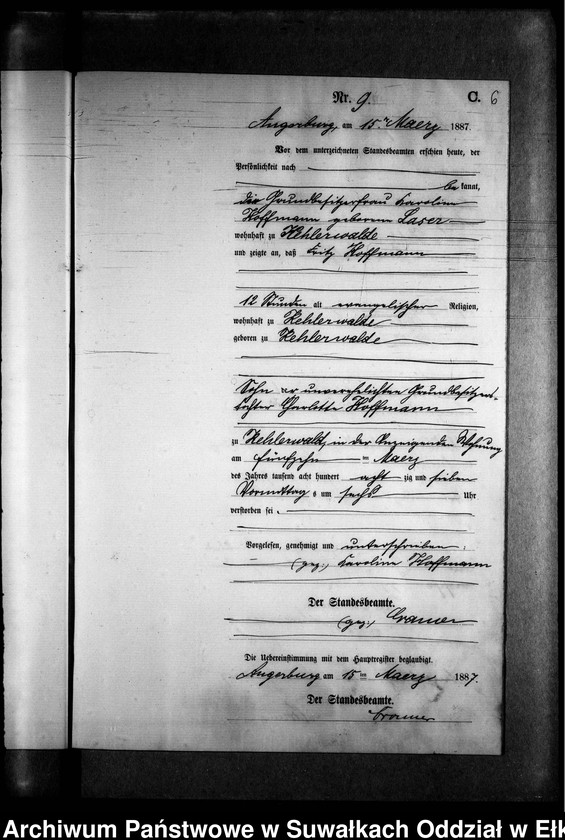 Nr. 9.
C. 6
Angerburg, am 15. Maerz 1887.
Vor dem unterzeichneten Standesbeamten erschien heute, der
Persönlichkeit nach
be kannt,
die Grundbesitzerfrau Karoline
Hoffmann geborene Laser
wohnhaft zu Kehlerwalde
und zeigte an, daß Fritz Hoffmann
12 Stunden alt evangelischer Religion,
wohnhaft zu Kehlerwalde
geboren zu Kehlerwalde
Sohn der unverehelichten Grundbesitzers-
tochter Charlotte Hoffmann
zu Kehlerwalde, in der Anzeigenden Wohnung
am fünfzehn ten Maerz
des Jahres tausend acht hundert acht zig und sieben
Vormittag s um sechs Uhr
verstorben sei.
Vorgelesen, genehmigt und unterschrieben:
(gez.) Karoline Hoffmann
Der Standesbeamte.
(gez.) Cramer
Die Uebereinstimmung mit dem Hauptregister beglaubigt.
Angerburg am 15 ten Maerz 1887.
Der Standesbeamte.
Cramer
Archiwum Państwowe w Suwałkach Oddział w Ełk